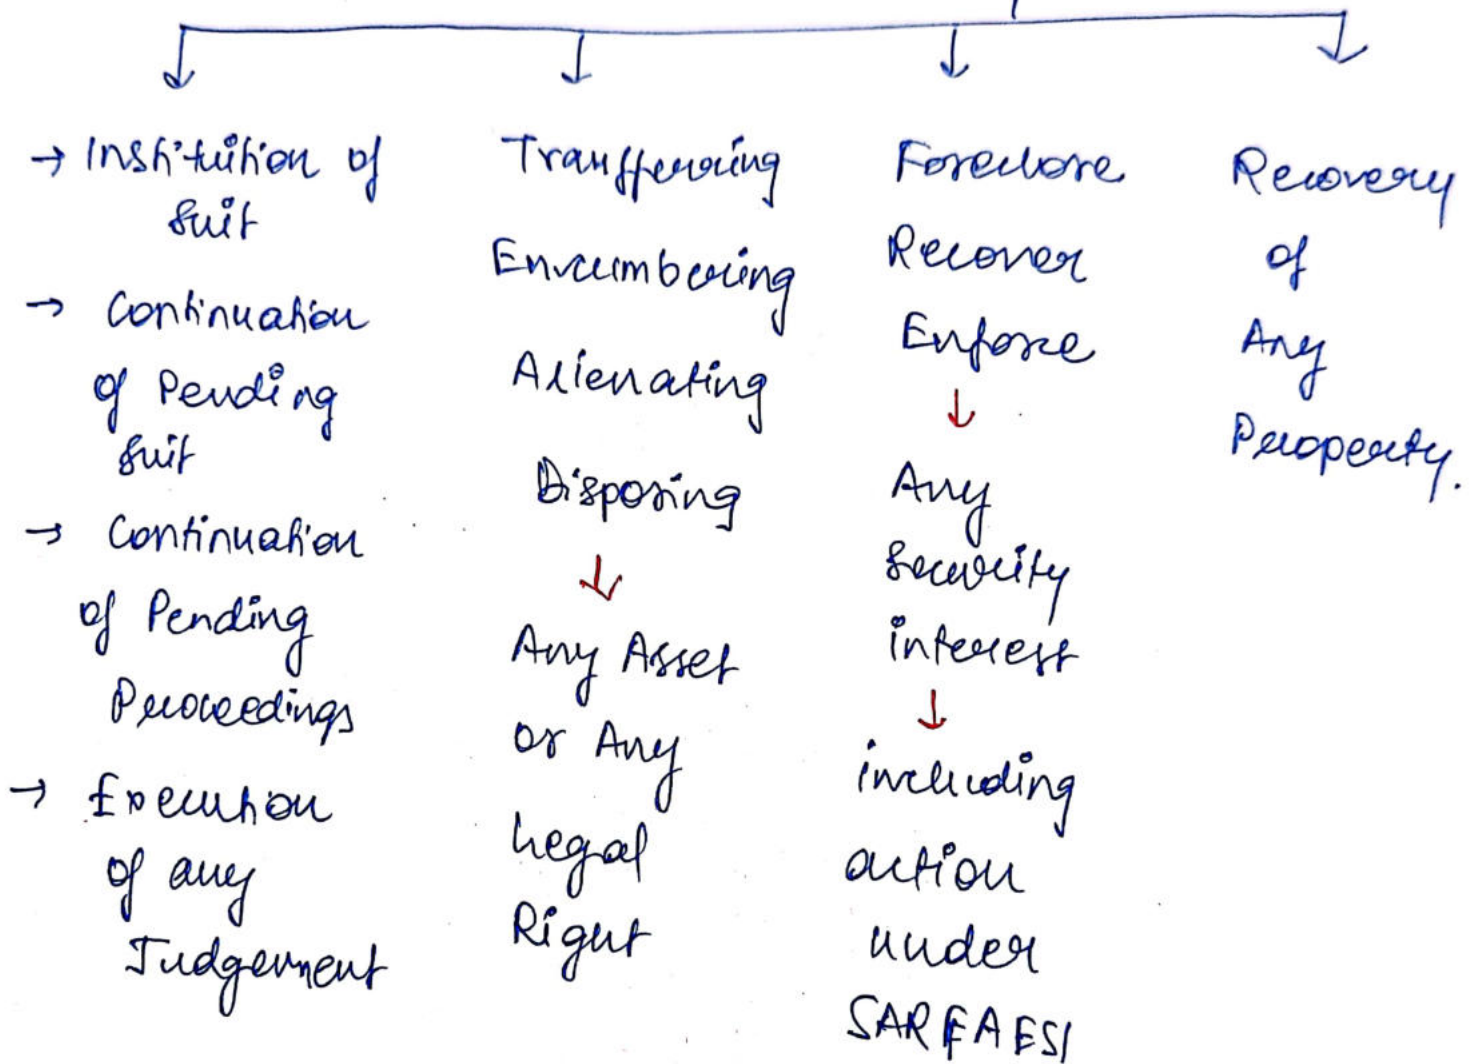 → Instituition of
suit
→ Continuation
of Pending
suit
→ Continuation
of Pending
Proceedings
→ Execution
of any
Judgement
Transferring
Encumbering
Alienating
Disposing
↓
Any Asset
or Any
Legal
Right
Foreclose
Recover
Enforce
↓
Any
Security
interest
↓
including
action
under
SARFAESI
Recovery
of
Any
Property.